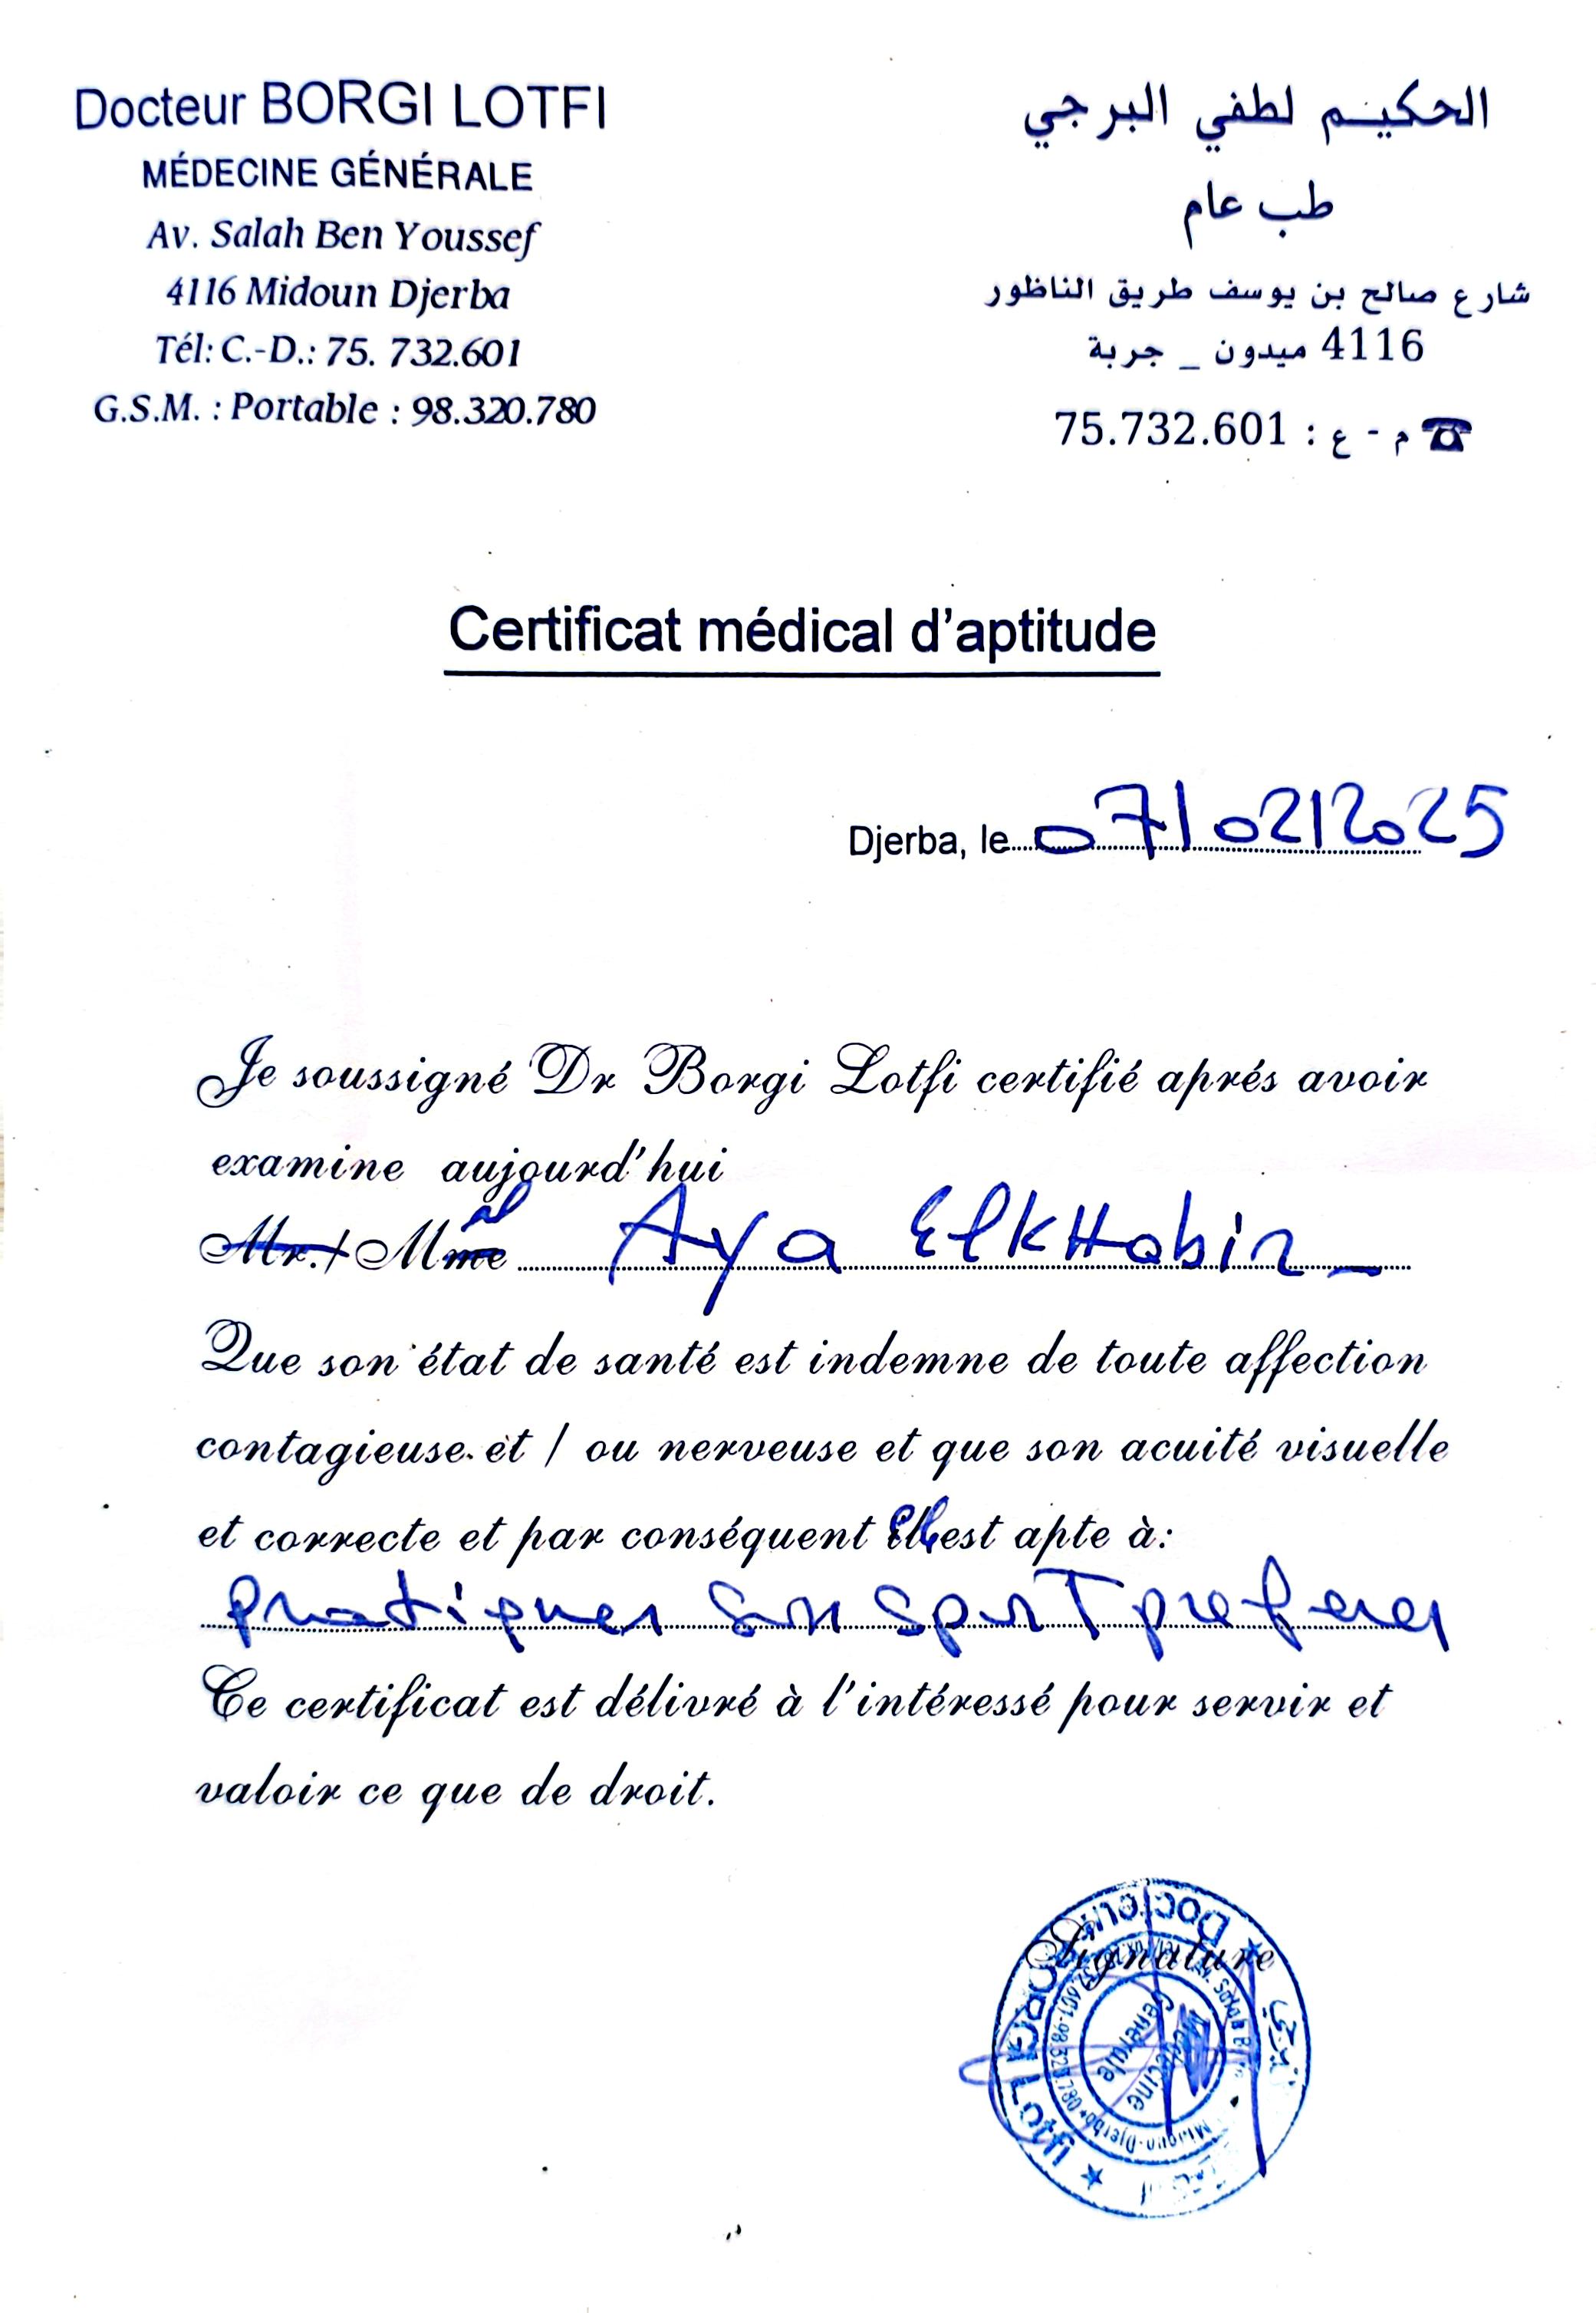 Docteur BORGI LOTFI
MÉDECINE GÉNÉRALE
Av. Salah Ben Youssef
4116 Midoun Djerba
Tél: C.-D.: 75. 732.601
G.S.M. : Portable : 98.320.780
الحكيم لطفي البرجي
طب عام
شارع صالح بن يوسف طريق الناظور
4116 ميدون _ جربة
☎ م - ع : 75.732.601
Certificat médical d'aptitude
Djerba, le 07/02/2025
Je soussigné Dr Borgi Lotfi certifié aprés avoir
examine aujourd'hui
Mr. / Mme Aya ElkHabir
Que son état de santé est indemne de toute affection
contagieuse et / ou nerveuse et que son acuité visuelle
et correcte et par conséquent Elle est apte à:
pratiquer son sport preferer
Ce certificat est délivré à l'intéressé pour servir et
valoir ce que de droit.
Signature
Docteur BORGI Lotfi
Médecine
Générale